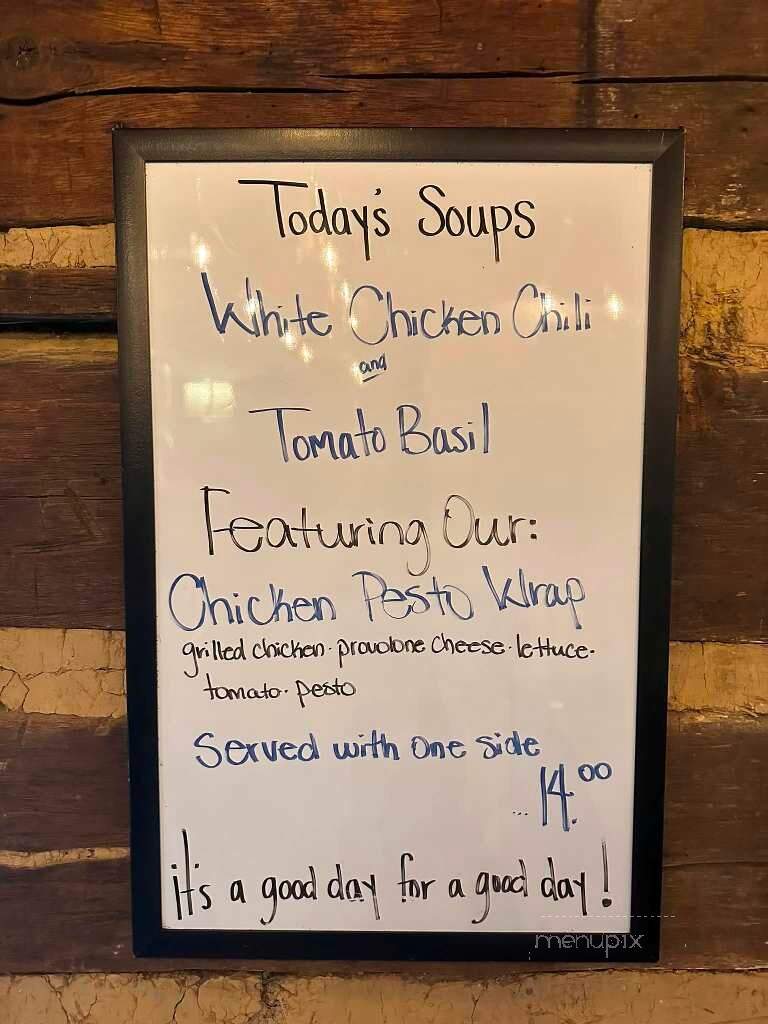 Today's Soups
White Chicken Chili
and
Tomato Basil
Featuring Our:
Chicken Pesto Wrap
grilled chicken · provolone cheese · lettuce ·
tomato · pesto
Served with one side
...14.00
it's a good day for a good day!
menupix